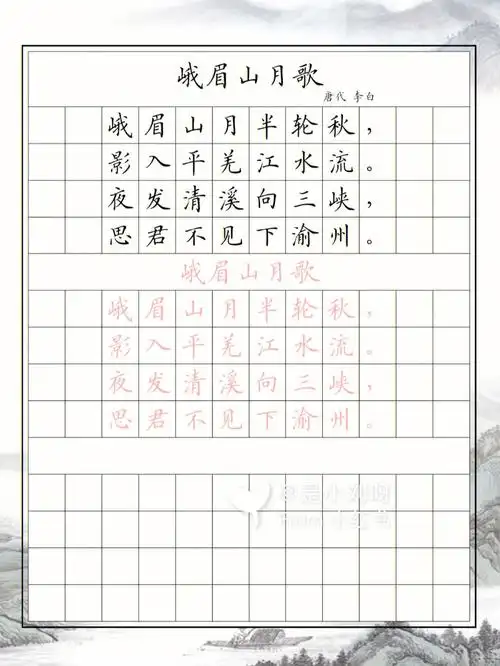 峨眉山月歌
唐代 李白
峨眉山月半轮秋，
影入平羌江水流。
夜发清溪向三峡，
思君不见下渝州。
峨眉山月歌
峨眉山月半轮秋，
影入平羌江水流。
夜发清溪向三峡，
思君不见下渝州。
小红书